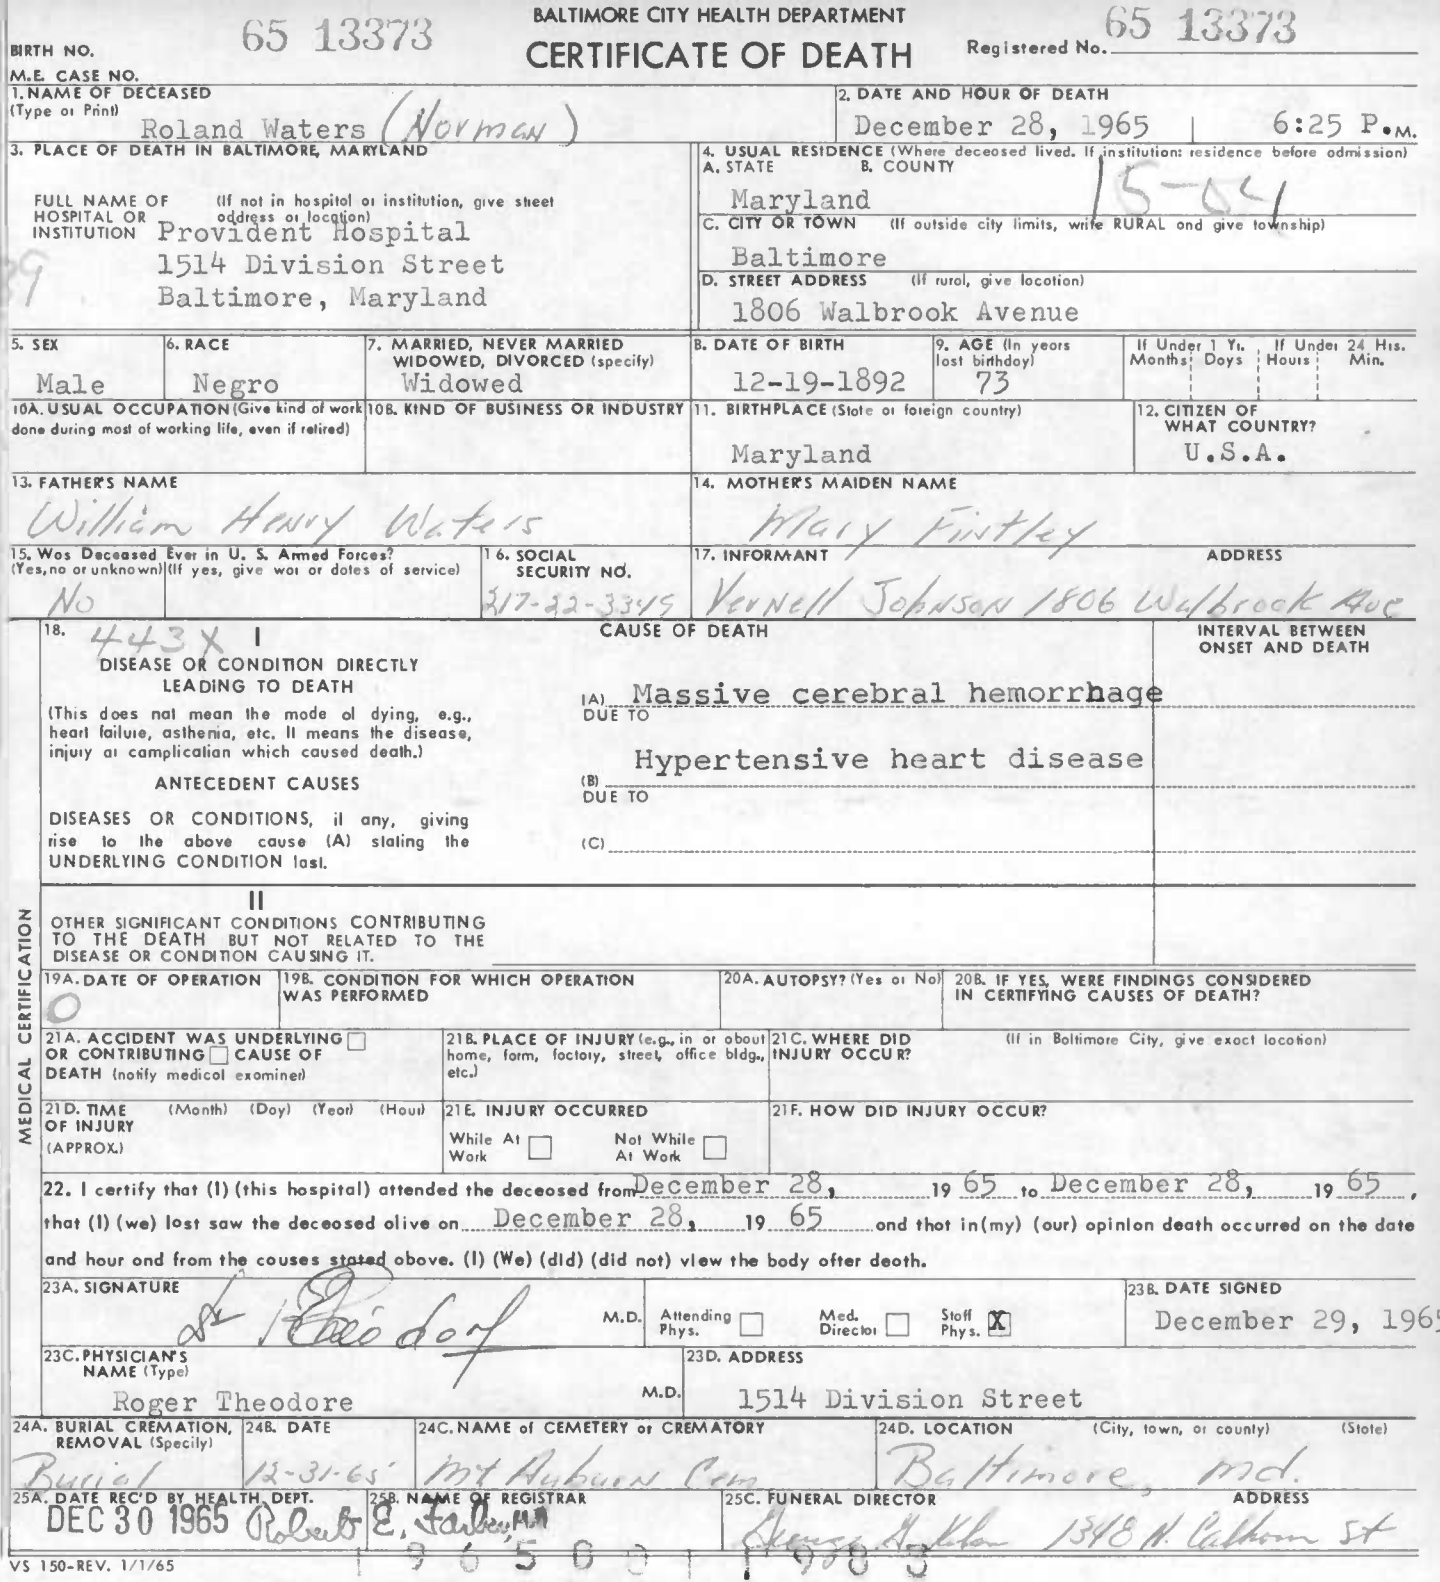 BALTIMORE CITY HEALTH DEPARTMENT
65 13373
65 13373
BIRTH NO.
CERTIFICATE OF DEATH
Registered No.
M.E. CASE NO.
1. NAME OF DECEASED
(Type or Print)
Roland Waters (Norman)
2. DATE AND HOUR OF DEATH
December 28, 1965 | 6:25 P.M.
3. PLACE OF DEATH IN BALTIMORE, MARYLAND
FULL NAME OF HOSPITAL OR INSTITUTION
(If not in hospital or institution, give street address or location)
Provident Hospital
1514 Division Street
Baltimore, Maryland
39
4. USUAL RESIDENCE (Where deceased lived. If institution: residence before admission)
A. STATE B. COUNTY
Maryland
15-04
C. CITY OR TOWN (If outside city limits, write RURAL and give township)
Baltimore
D. STREET ADDRESS (If rural, give location)
1806 Walbrook Avenue
5. SEX
Male
6. RACE
Negro
7. MARRIED, NEVER MARRIED
WIDOWED, DIVORCED (specify)
Widowed
8. DATE OF BIRTH
12-19-1892
9. AGE (In years
last birthday)
73
If Under 1 Yr.
Months Days
If Under 24 Hrs.
Hours Min.
10A. USUAL OCCUPATION (Give kind of work
done during most of working life, even if retired)
10B. KIND OF BUSINESS OR INDUSTRY
11. BIRTHPLACE (State or foreign country)
Maryland
12. CITIZEN OF
WHAT COUNTRY?
U.S.A.
13. FATHER'S NAME
William Henry Waters
14. MOTHER'S MAIDEN NAME
Mary
15. Was Deceased Ever in U. S. Armed Forces?
(Yes, no or unknown) (If yes, give war or dates of service)
No
16. SOCIAL
SECURITY NO.
217-22-3345
17. INFORMANT ADDRESS
Vernell Johnson 1806 Walbrook Ave
18. 443X I
DISEASE OR CONDITION DIRECTLY
LEADING TO DEATH
(This does not mean the mode of dying, e.g.,
heart failure, asthenia, etc. It means the disease,
injury or complication which caused death.)
ANTECEDENT CAUSES
DISEASES OR CONDITIONS, if any, giving
rise to the above cause (A) stating the
UNDERLYING CONDITION last.
CAUSE OF DEATH
INTERVAL BETWEEN
ONSET AND DEATH
(A) Massive cerebral hemorrhage
DUE TO
(B) Hypertensive heart disease
DUE TO
(C)
II
OTHER SIGNIFICANT CONDITIONS CONTRIBUTING
TO THE DEATH BUT NOT RELATED TO THE
DISEASE OR CONDITION CAUSING IT.
MEDICAL CERTIFICATION
19A. DATE OF OPERATION
0
19B. CONDITION FOR WHICH OPERATION
WAS PERFORMED
20A. AUTOPSY? (Yes or No)
20B. IF YES, WERE FINDINGS CONSIDERED
IN CERTIFYING CAUSES OF DEATH?
21A. ACCIDENT WAS UNDERLYING
OR CONTRIBUTING CAUSE OF
DEATH (notify medical examiner)
21B. PLACE OF INJURY (e.g., in or about
home, farm, factory, street, office bldg.,
etc.)
21C. WHERE DID
INJURY OCCUR?
(If in Baltimore City, give exact location)
21D. TIME (Month) (Day) (Year) (Hour)
OF INJURY
(APPROX.)
21E. INJURY OCCURRED
While At Work
Not While At Work
21F. HOW DID INJURY OCCUR?
22. I certify that (I) (this hospital) attended the deceased from December 28, 19 65 to December 28, 19 65,
that (I) (we) last saw the deceased alive on December 28, 19 65 and that in(my) (our) opinion death occurred on the date
and hour and from the causes stated above. (I) (We) (did) (did not) view the body after death.
23A. SIGNATURE
M.D.
Attending Phys.
Med. Director
Staff Phys. X
23B. DATE SIGNED
December 29, 1965
23C. PHYSICIAN'S
NAME (Type)
Roger Theodore
M.D.
23D. ADDRESS
1514 Division Street
24A. BURIAL CREMATION,
REMOVAL (Specify)
Burial
24B. DATE
12-31-65
24C. NAME of CEMETERY or CREMATORY
Mt Auburn Cem
24D. LOCATION (City, town, or county) (State)
Baltimore, Md.
25A. DATE REC'D BY HEALTH DEPT.
DEC 30 1965
25B. NAME OF REGISTRAR
Robert E. Farber, M.D.
25C. FUNERAL DIRECTOR ADDRESS
1348 N. Calhoun St
VS 150-REV. 1/1/65